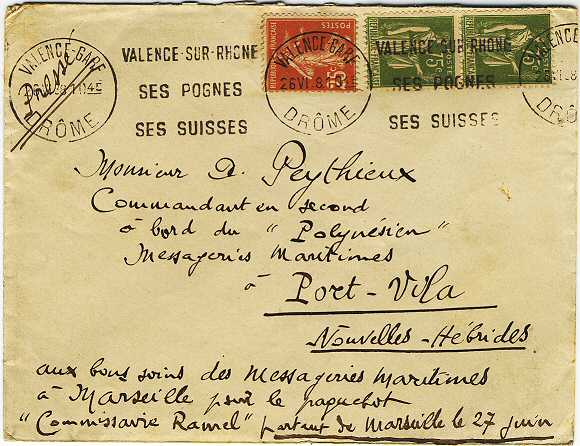 VALENCE-GARE
DRÔME
Presse
VALENCE-SUR-RHONE
SES POGNES
SES SUISSES
VALENCE-GARE
26 VI.8
DRÔME
VALENCE-SUR-RHONE
SES POGNES
SES SUISSES
DRÔME
Monsieur A. Peythieux
Commandant en second
à bord du "Polynésien"
Messageries Maritimes
à
Port-Vila
Nouvelles-Hébrides
aux bons soins des Messageries Maritimes
à Marseille pour le paquebot
"Commissaire Ramel" partant de Marseille le 27 juin